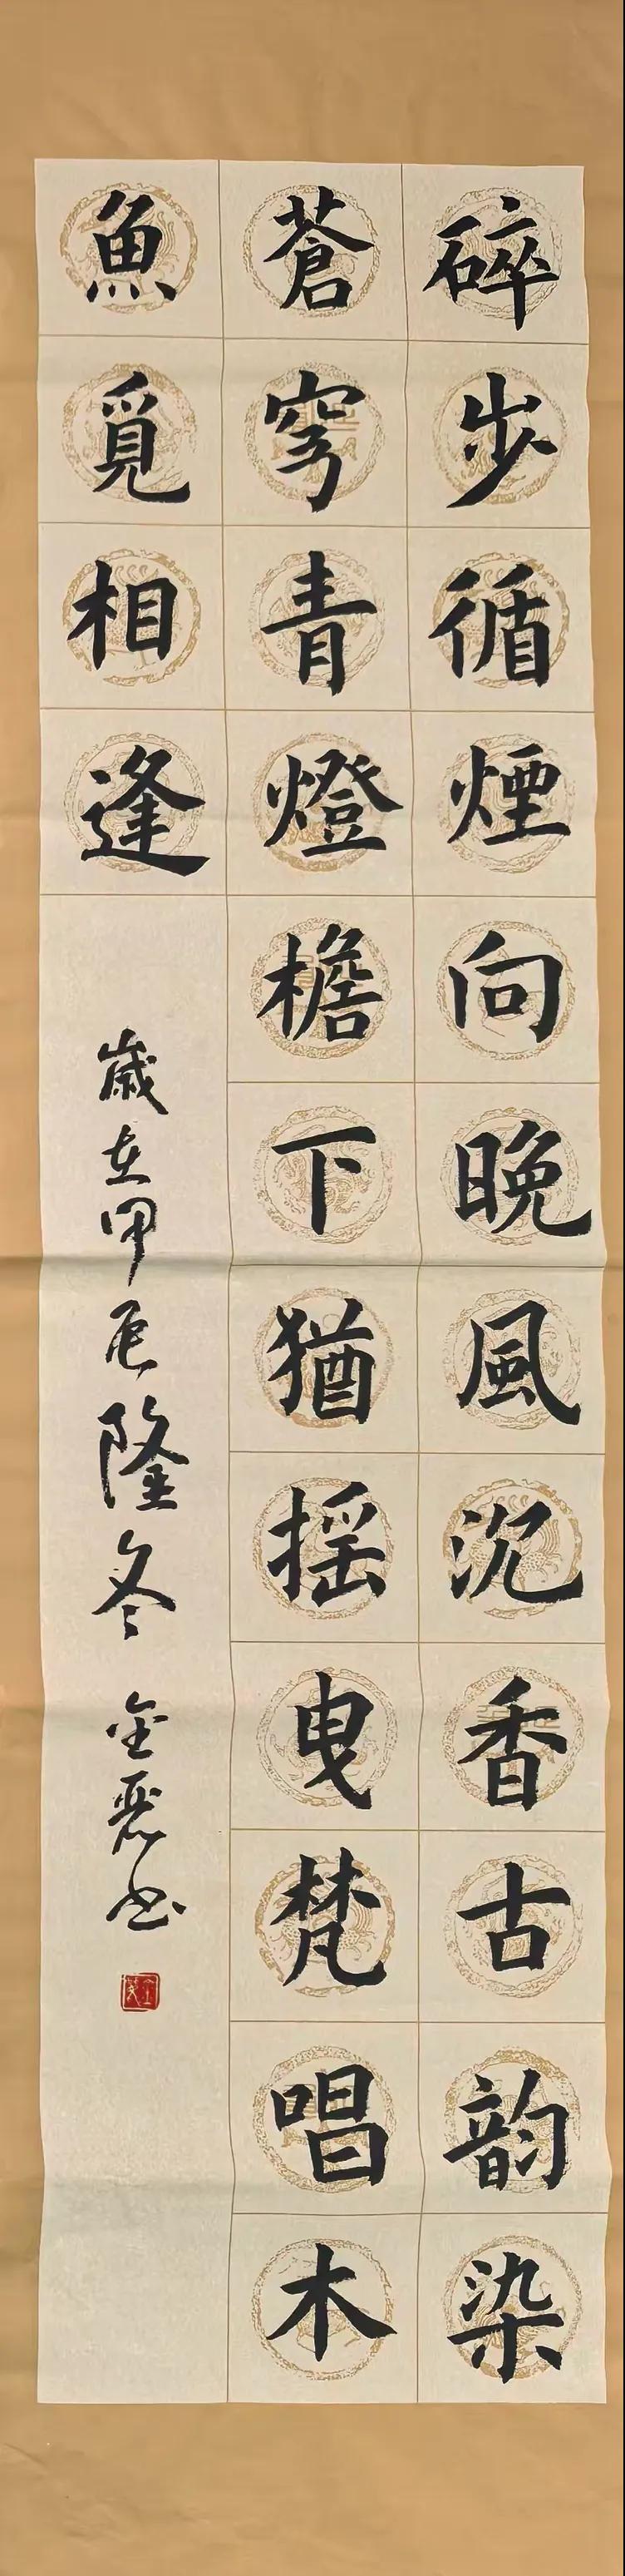 碎步循煙向晚風沉香古韵染
蒼穹青燈檐下猶摇曳梵唱木
魚覓相逢
歲在甲辰隆冬
金書